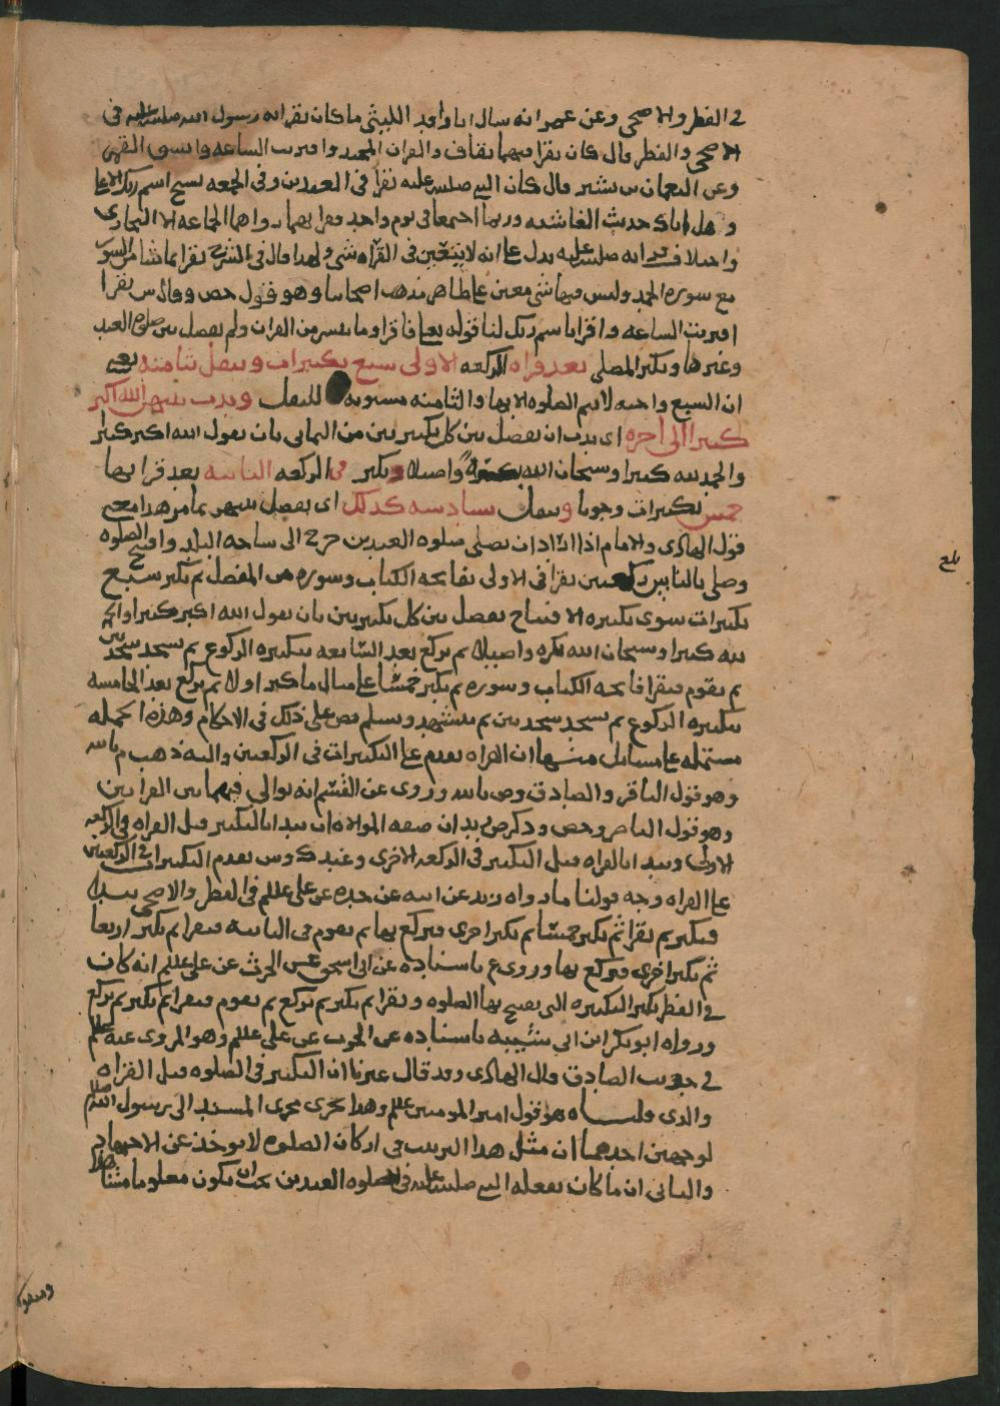 في الفطر والاضحى وعن عمر انه سال ابا واقد الليثي ما كان يقرا به رسول الله صلى الله عليه في
الاضحى والفطر قال كان يقرا فيهما بقاف والقران المجيد واقتربت الساعه وانشق القمر
وعن النعمان بن بشير قال كان النبي صلى الله عليه يقرا في العيدين وفي الجمعه بسبح اسم ربك الاعلا
وهل اتاك حديث الغاشيه وربما اجتمعا في يوم واحد فقرا بهما رواهما الجماعه الا البخاري
واختلاف انه صلى الله عليه يدل على انه لا يتعين في القراه شي ولهذا قال في الشرح يقرا بما شا من السور
مع سوره الحمد وليس فيها شي معين على ظاهر مذهب اصحابنا وهو قول حص وقال س يقرا
اقتربت الساعه واقرا باسم ربك لنا قوله تعا فاقروا ما تيسر من القران ولم يفصل بين صلوه العيد
وغيرها ويكبر المصلي بعد قراه الركعه الاولى سبع تكبيرات وينقل بثامنه يعني
ان السبع واجبه لا تتم الصلوه الا بها والثامنه مسنونه للنقل وندب بينهن الله اكبر
كبيرا الى اخره اي يندب ان يفصل بين كل تكبيرتين من الثماني بان يقول الله اكبر كبيرا
والحمد لله كثيرا وسبحان الله بكرة واصيلا ويكبر في الركعه الثانيه بعد قرا بها
خمس تكبيرات وجوبا وينقل بسادسه كذلك اي يفصل بينهن بما مر هذا معنى
قول الهادي والامام اذا اراد ان يصلي صلوه العيدين خرج الى ساحه البلد وافتتح الصلوه
وصلى بالناس ركعتين يقرا في الاولى بفاتحه الكتاب وسوره من المفصل ثم يكبر سبع
تكبيرات سوى تكبيره الافتتاح يفصل بين كل تكبيرتين بان يقول الله اكبر كبيرا والحمد
لله كثيرا وسبحان الله بكره واصيلا ثم يركع بعد السابعه بتكبيره الركوع ثم يسجد سجدتين
ثم يقوم فيقرا فاتحه الكتاب وسوره ثم يكبر خمسا على مثال ما كبر اولا ثم يركع بعد الخامسه
بتكبيره الركوع ثم يسجد سجدتين ثم يتشهد ويسلم نص على ذلك في الاحكام وهذه الجمله
مشتمله على مسايل منها ان القراه تقدم على التكبيرات في الركعتين واليه ذهب م بالله
وهو قول الباقر والصادق وص بالله وروي عن القسم انه يوالي فيهما بين القراتين
وهو قول الناصر وحص وذكر ص بد ان صفه الموالاه ان يبدا بالتكبير قبل القراه في الركعه
الاولى ويبدا بالقراه قبل التكبير في الركعه الاخرى وعند ك وس يقدم التكبيرات في الركعتين
على القراه وجه قولنا ما رواه زيد عن ابيه عن جده عن علي علم في الفطر والاضحى يبدا
فيكبر ثم يقرا ثم يكبر خمسا ثم يكبر اخرى فيركع بها ثم يقوم في الثانيه فيقرا ثم يكبر اربعا
ثم يكبر اخرى فيركع بها وروى ع باسناده عن ابي اسحق عن الحرث عن علي علم انه كان
في الفطر يكبر التكبيره التي يفتتح بها الصلوه ويقرا ثم يكبر ثم يركع ثم يقوم فيقرا ثم يكبر ثم يركع
ورواه ابو بكر ابن ابي شيبه باسناده عن الحرث عن علي علم وهو المروي عنه علم
في حديث الصادق قال الهادي وقد قال غيرنا ان التكبير في الصلوه قبل القراه
والذي قلناه هو قول امير المومنين علم وهذا يجري مجرى المسند الى رسول الله صلم
لوجهين احدهما ان مثل هذا الترتيب في اركان الصلوه لا يوخذ عن الاجتهاد
والثاني ان ما كان يفعله النبي صلى الله عليه في صلوه العيدين يجب ان يكون معلوما
بلغ